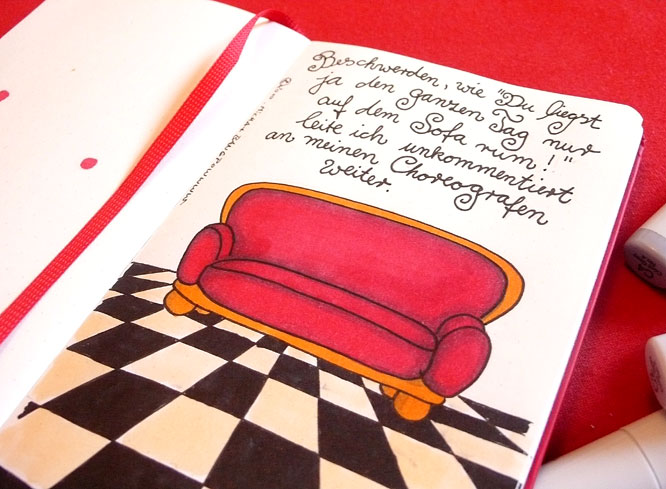 Beschwerden, wie "Du liegst
ja den ganzen Tag nur
auf dem Sofa rum!"
leite ich unkommentiert
an meinen Choreografen
weiter.